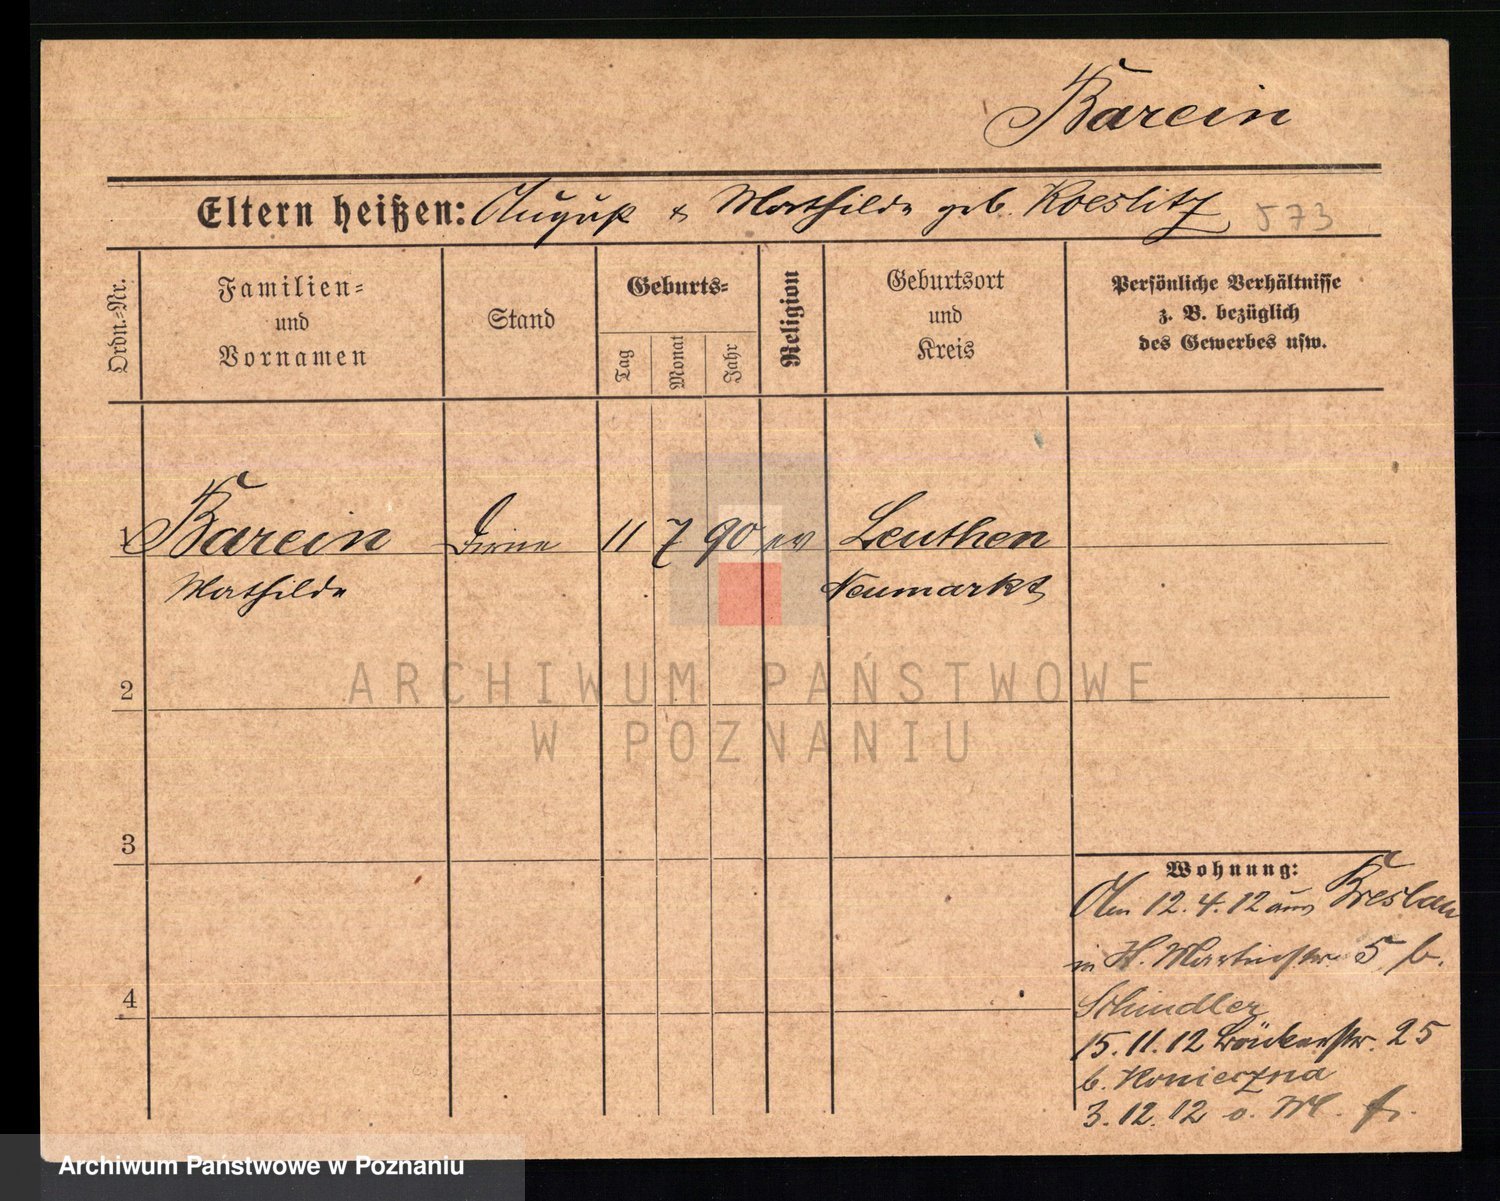 Barein
Eltern heißen: August & Mathilde geb. Koeslitz 573
Ordn.-Nr.
Familien-
und
Vornamen
Stand
Geburts-
Tag
Monat
Jahr
Religion
Geburtsort
und
Kreis
Persönliche Verhältnisse
z. B. bezüglich
des Gewerbes usw.
1 Barein Dirne 11 7 90 ev Leuthen
Mathilde Neumarkt
2
3
4
Wohnung:
Am 12.4.12 aus Breslau
in St. Martinstr. 5 b.
Schindler
15.11.12 Bäckerstr. 25
b. Konieczna
3.12.12 o. M. fr.
ARCHIWUM PAŃSTWOWE
W POZNANIU
Archiwum Państwowe w Poznaniu